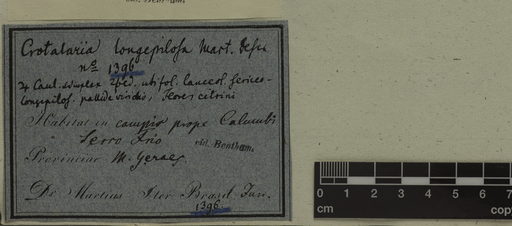 Crotalaria longepilosa Mart. Hefu
no 1396
Caul. simplex 2ped. uti fol. lanceol. sericeo-
longepilos. pallide viridis, Flores citrini
Habitat in campis prope Calumbi
Serro Frio
vid. Bentham.
Provinciae M. Geraes
De Martius Iter Brasil. Jun.
1396
0 1 2 3 4 5 6 7
cm